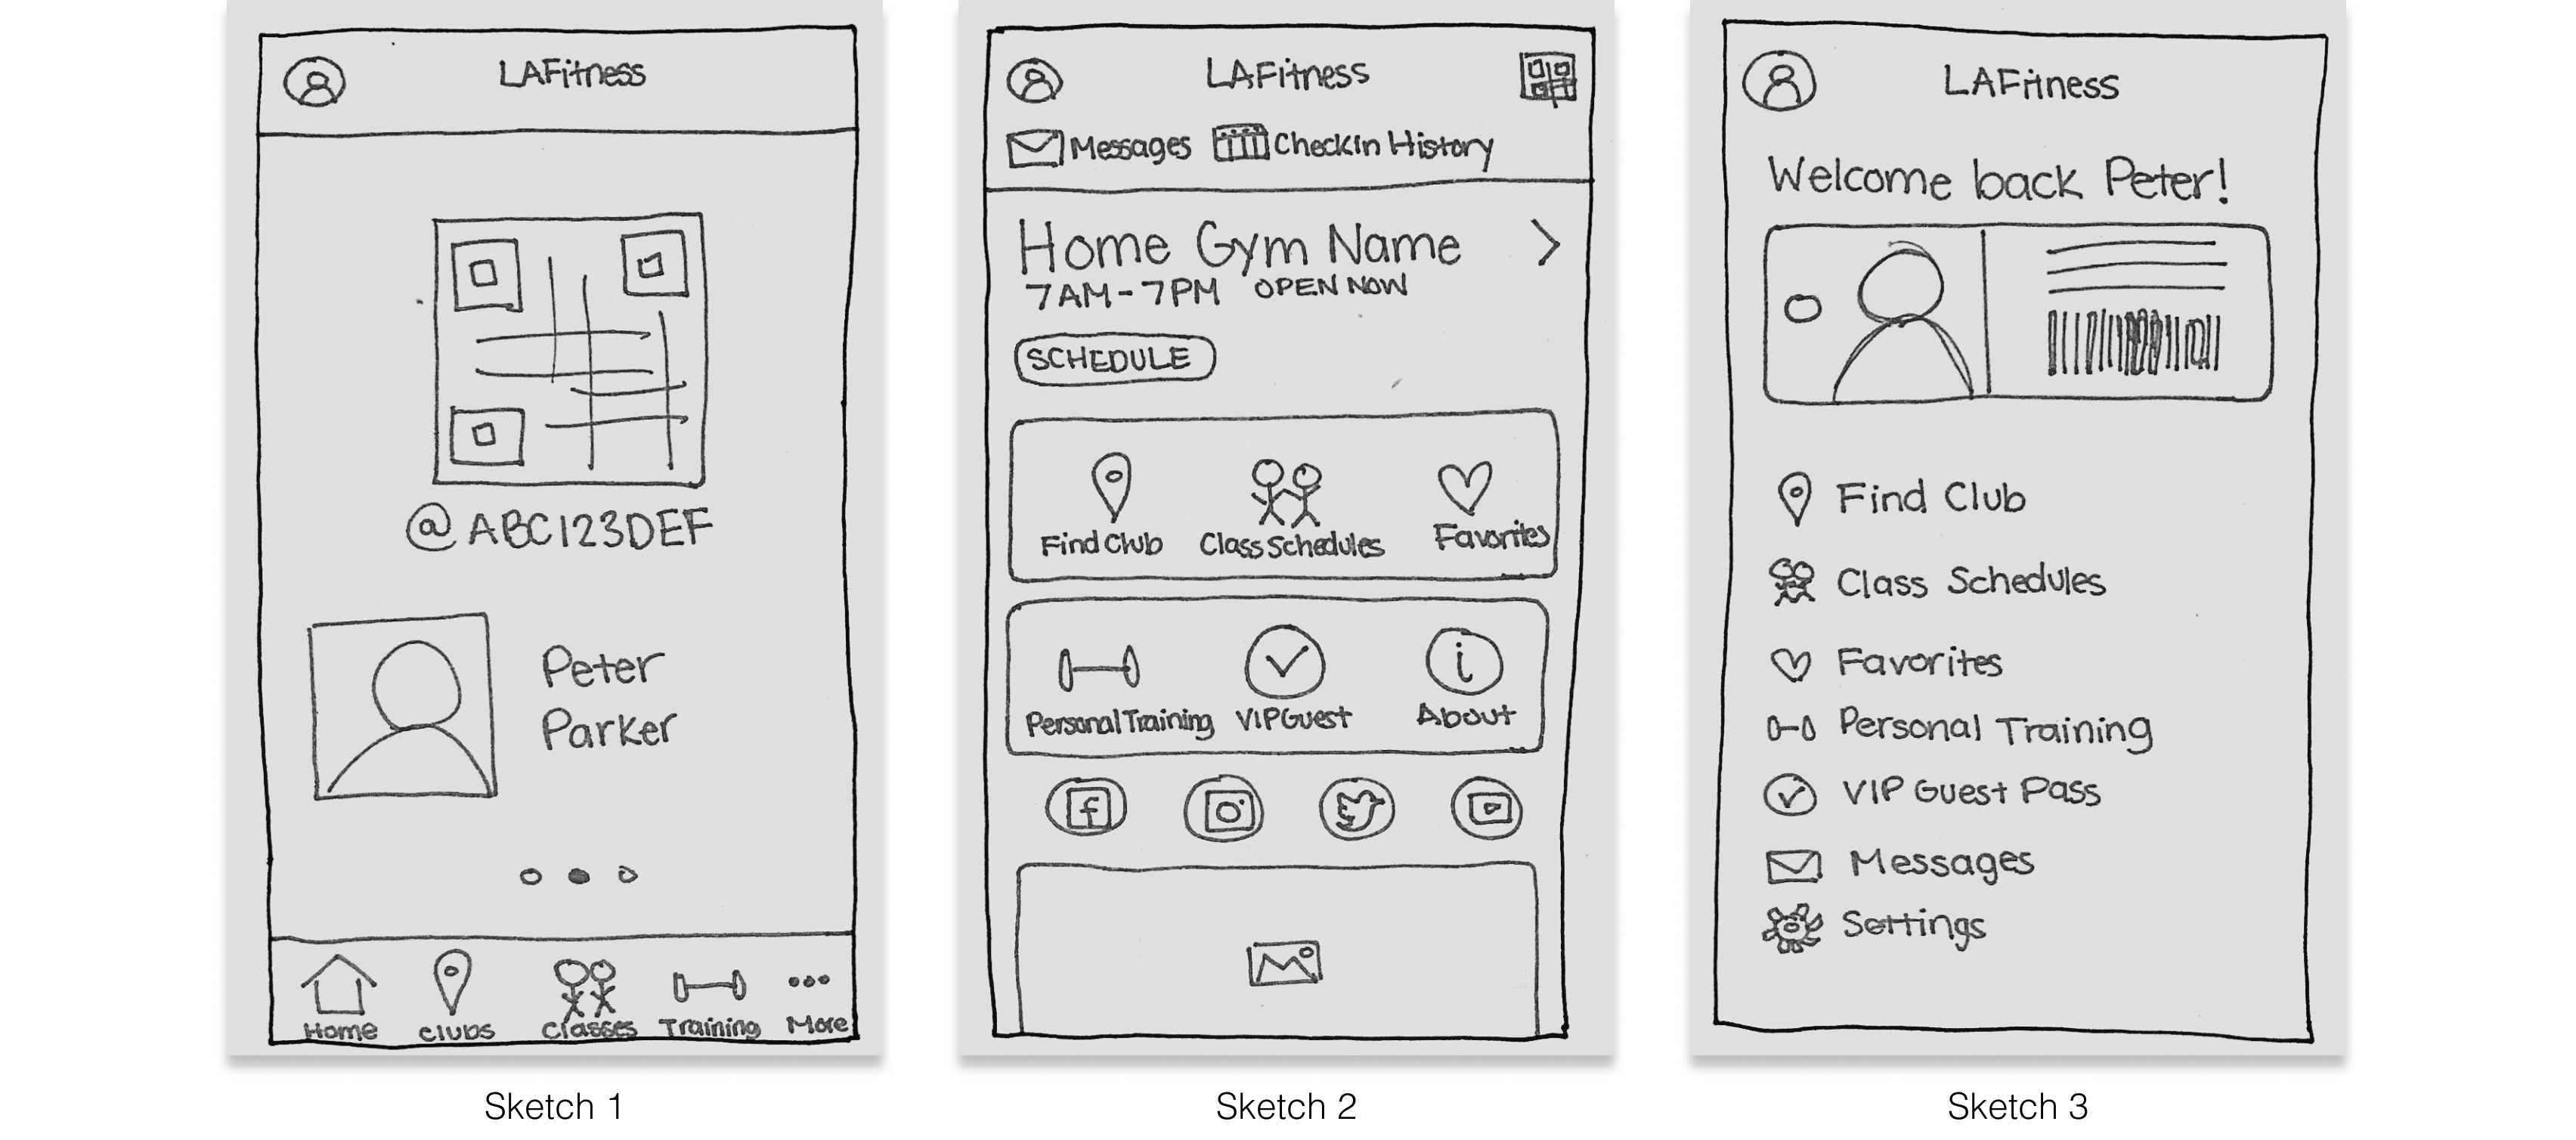 LAFitness
@ABC123DEF
Peter
Parker
Home Clubs Classes Training More
Sketch 1
LAFitness
Messages CheckIn History
Home Gym Name >
7AM-7PM OPEN NOW
SCHEDULE
Find Club Class Schedules Favorites
Personal Training VIP Guest About
Sketch 2
LAFitness
Welcome back Peter!
Find Club
Class Schedules
Favorites
Personal Training
VIP Guest Pass
Messages
Settings
Sketch 3